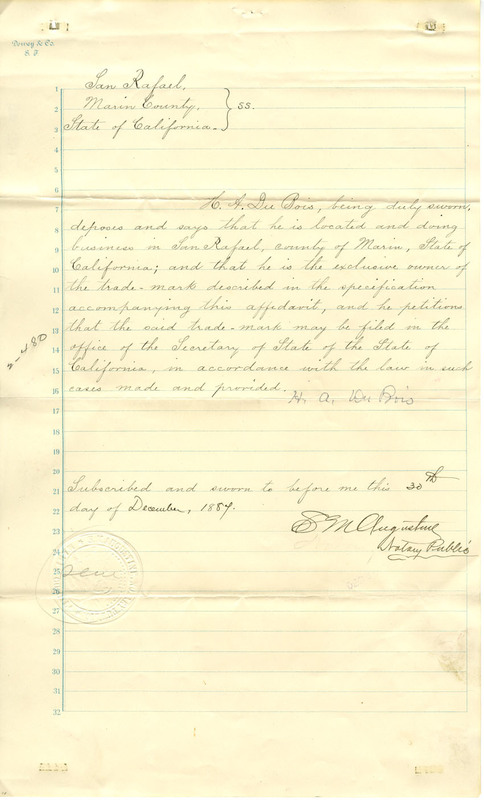 Dewey & Co.
S. F.
1 San Rafael,
2 Marin County, } ss.
3 State of California.
4
5
6
7 H. A. Du Bois, being duly sworn,
8 deposes and says that he is located and doing
9 business in San Rafael, county of Marin, State of
10 California; and that he is the exclusive owner of
11 the trade-mark described in the specification
12 accompanying this affidavit, and he petitions
13 that the said trade-mark may be filed in the
14 office of the Secretary of State of the State of
15 California, in accordance with the law in such
16 cases made and provided.
H. A. Du Bois
17
18
19
20
21 Subscribed and sworn to before me this 30th
22 day of December, 1889.
23 E M Augustine
24 Notary Public
25 Seal
26
27
28
29
30
31
32
2-480